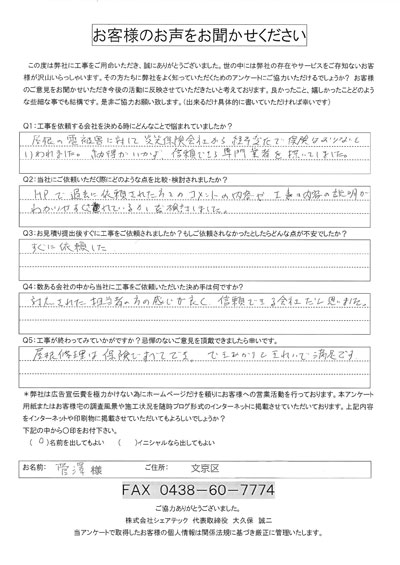 お客様のお声をお聞かせください
この度は弊社に工事をご用命いただき、誠にありがとうございました。世の中には弊社の存在やサービスをご存知ないお客
様が沢山いらっしゃいます。その方たちに弊社をよく知っていただくためのアンケートにご協力いただけるでしょうか? お客様
のご意見をお聞かせいただき今後の活動に反映させていただきたいと考えております。良かったこと、嬉しかったことどのよう
な些細な事でも結構です。是非ご協力お願い致します。(出来るだけ具体的に書いていただければ幸いです)
Q1:工事を依頼する会社を決める時にどんなことで悩まれていましたか?
屋根の 被害に対して 火災保険会社から 経年劣化で保険はおりないと
いわれました。納得がいかず、信頼できる専門業者を探していました。
Q2:当社にご依頼いただく際にどのような点を比較・検討されましたか?
HPで過去に依頼された方々のコメントの内容や工事の内容の説明が
わかりやすく されているかを確認しました。
Q3:お見積り提出後すぐに工事をご依頼されましたか?もしご依頼されなかったとしたらどんな点が不安でしたか?
すぐに依頼した
Q4:数ある会社の中から当社に工事をご依頼いただいた決め手は何ですか?
対応された担当者の方の感じが良く、信頼できる会社だと思いました。
Q5:工事が終わってみていかがですか?忌憚のないご意見を頂戴できましたら幸いです。
屋根修理は保険ですべてでき、できあがりもきれいで満足です
＊弊社は広告宣伝費を極力かけない為にホームページだけを頼りにお客様への営業活動を行っております。本アンケート
用紙またはお客様宅の調査風景や施工状況を随時ブログ形式のインターネットに掲載させていただいております。上記内容
をインターネットや印刷物に掲載させていただいてもよろしいでしょうか?
下記の中から〇印をお付下さい。
(〇)名前を出してもよい ( )イニシャルなら出してもよい
お名前: 菅澤 様 ご住所: 文京区
FAX 0438-60-7774
ご協力ありがとうございました。
株式会社シェアテック 代表取締役 大久保 誠二
当アンケートで取得したお客様の個人情報は関係法規に基づき厳正に管理いたします。